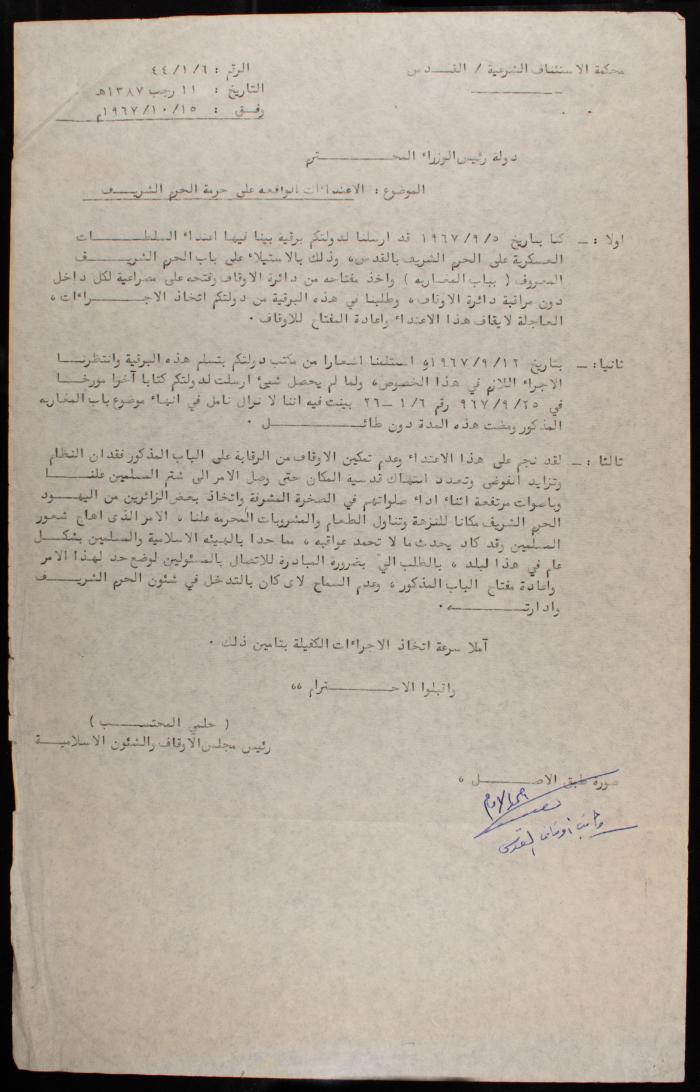 محكمة الاستئناف الشرعية / القدس
الرقم : ٤٤/١/٦
التاريخ : ١١ رجب ١٣٨٧هـ
وفق : ١٩٦٧/١٠/١٥م
دولة رئيس الوزراء المحترم
الموضوع : الاعتداءات الواقعه على حرمة الحرم الشريف
اولا :ـ كنا بتاريخ ١٩٦٧/٩/٥ قد ارسلنا لدولتكم برقية بينا فيها اعتداء السلطات
العسكرية على الحرم الشريف بالقدس، وذلك بالاستيلاء على باب الحرم الشريف
المعروف ( بباب المغاربه ) واخذ مفتاحه من دائرة الاوقاف وفتحه على مصراعية لكل داخل
دون مراقبة دائرة الاوقاف، وطلبنا في هذه البرقية من دولتكم اتخاذ الاجراءات،
العاجلة لايقاف هذا الاعتداء واعادة المفتاح للاوقاف .
ثانيا:ـ بتاريخ ١٩٦٧/٩/١٢ استلمنا اشعارا من مكتب دولتكم بتسلم هذه البرقية وانتظرنا
الاجراء اللازم في هذا الخصوص، ولما لم يحصل شيئ ارسلت لدولتكم كتابا آخرا مورخا
في ٩٦٧/٩/٢٥ رقم ١/٦ -٢٦ بينت فيه اننا لا نزال نامل في انهاء موضوع باب المغاربه
المذكور ومضت هذه المدة دون طائل .
ثالثا :ـ لقد نجم على هذا الاعتداء وعدم تمكين الاوقاف من الرقابة على الباب المذكور فقدان النظام
وتزايد الفوضى وتعدد انتهاك قدسية المكان حتى وصل الامر الى شتم المسلمين علنا
وباصوات مرتفعة اثناء اداء صلواتهم في الصخرة المشرفة واتخاذ بعض الزائرين من اليهود
الحرم الشريف مكانا للنزهة وتناول الطعام والمشروبات المحرمه علنا، الامر الذى اهاج شعور
المسلمين وقد كاد يحدث ما لا تحمد عواقبه، مما حدا بالهيئه الاسلامية والمسلمين بشكل
عام في هذا البلد، بالطلب الي بضرورة المبادرة للاتصال بالمسئولين لوضع حد لهذا الامر
واعادة مفتاح الباب المذكور، وعدم السماح لاى كان بالتدخل في شئون الحرم الشريف
وادارته .
آملا سرعة اتخاذ الاجراءات الكفيلة بتامين ذلك .
واقبلوا الاحترام ،،
( حلمي المحتسب )
رئيس مجلس الاوقاف والشئون الاسلامية
صورة طبق الاصل ،
اوقاف القدس